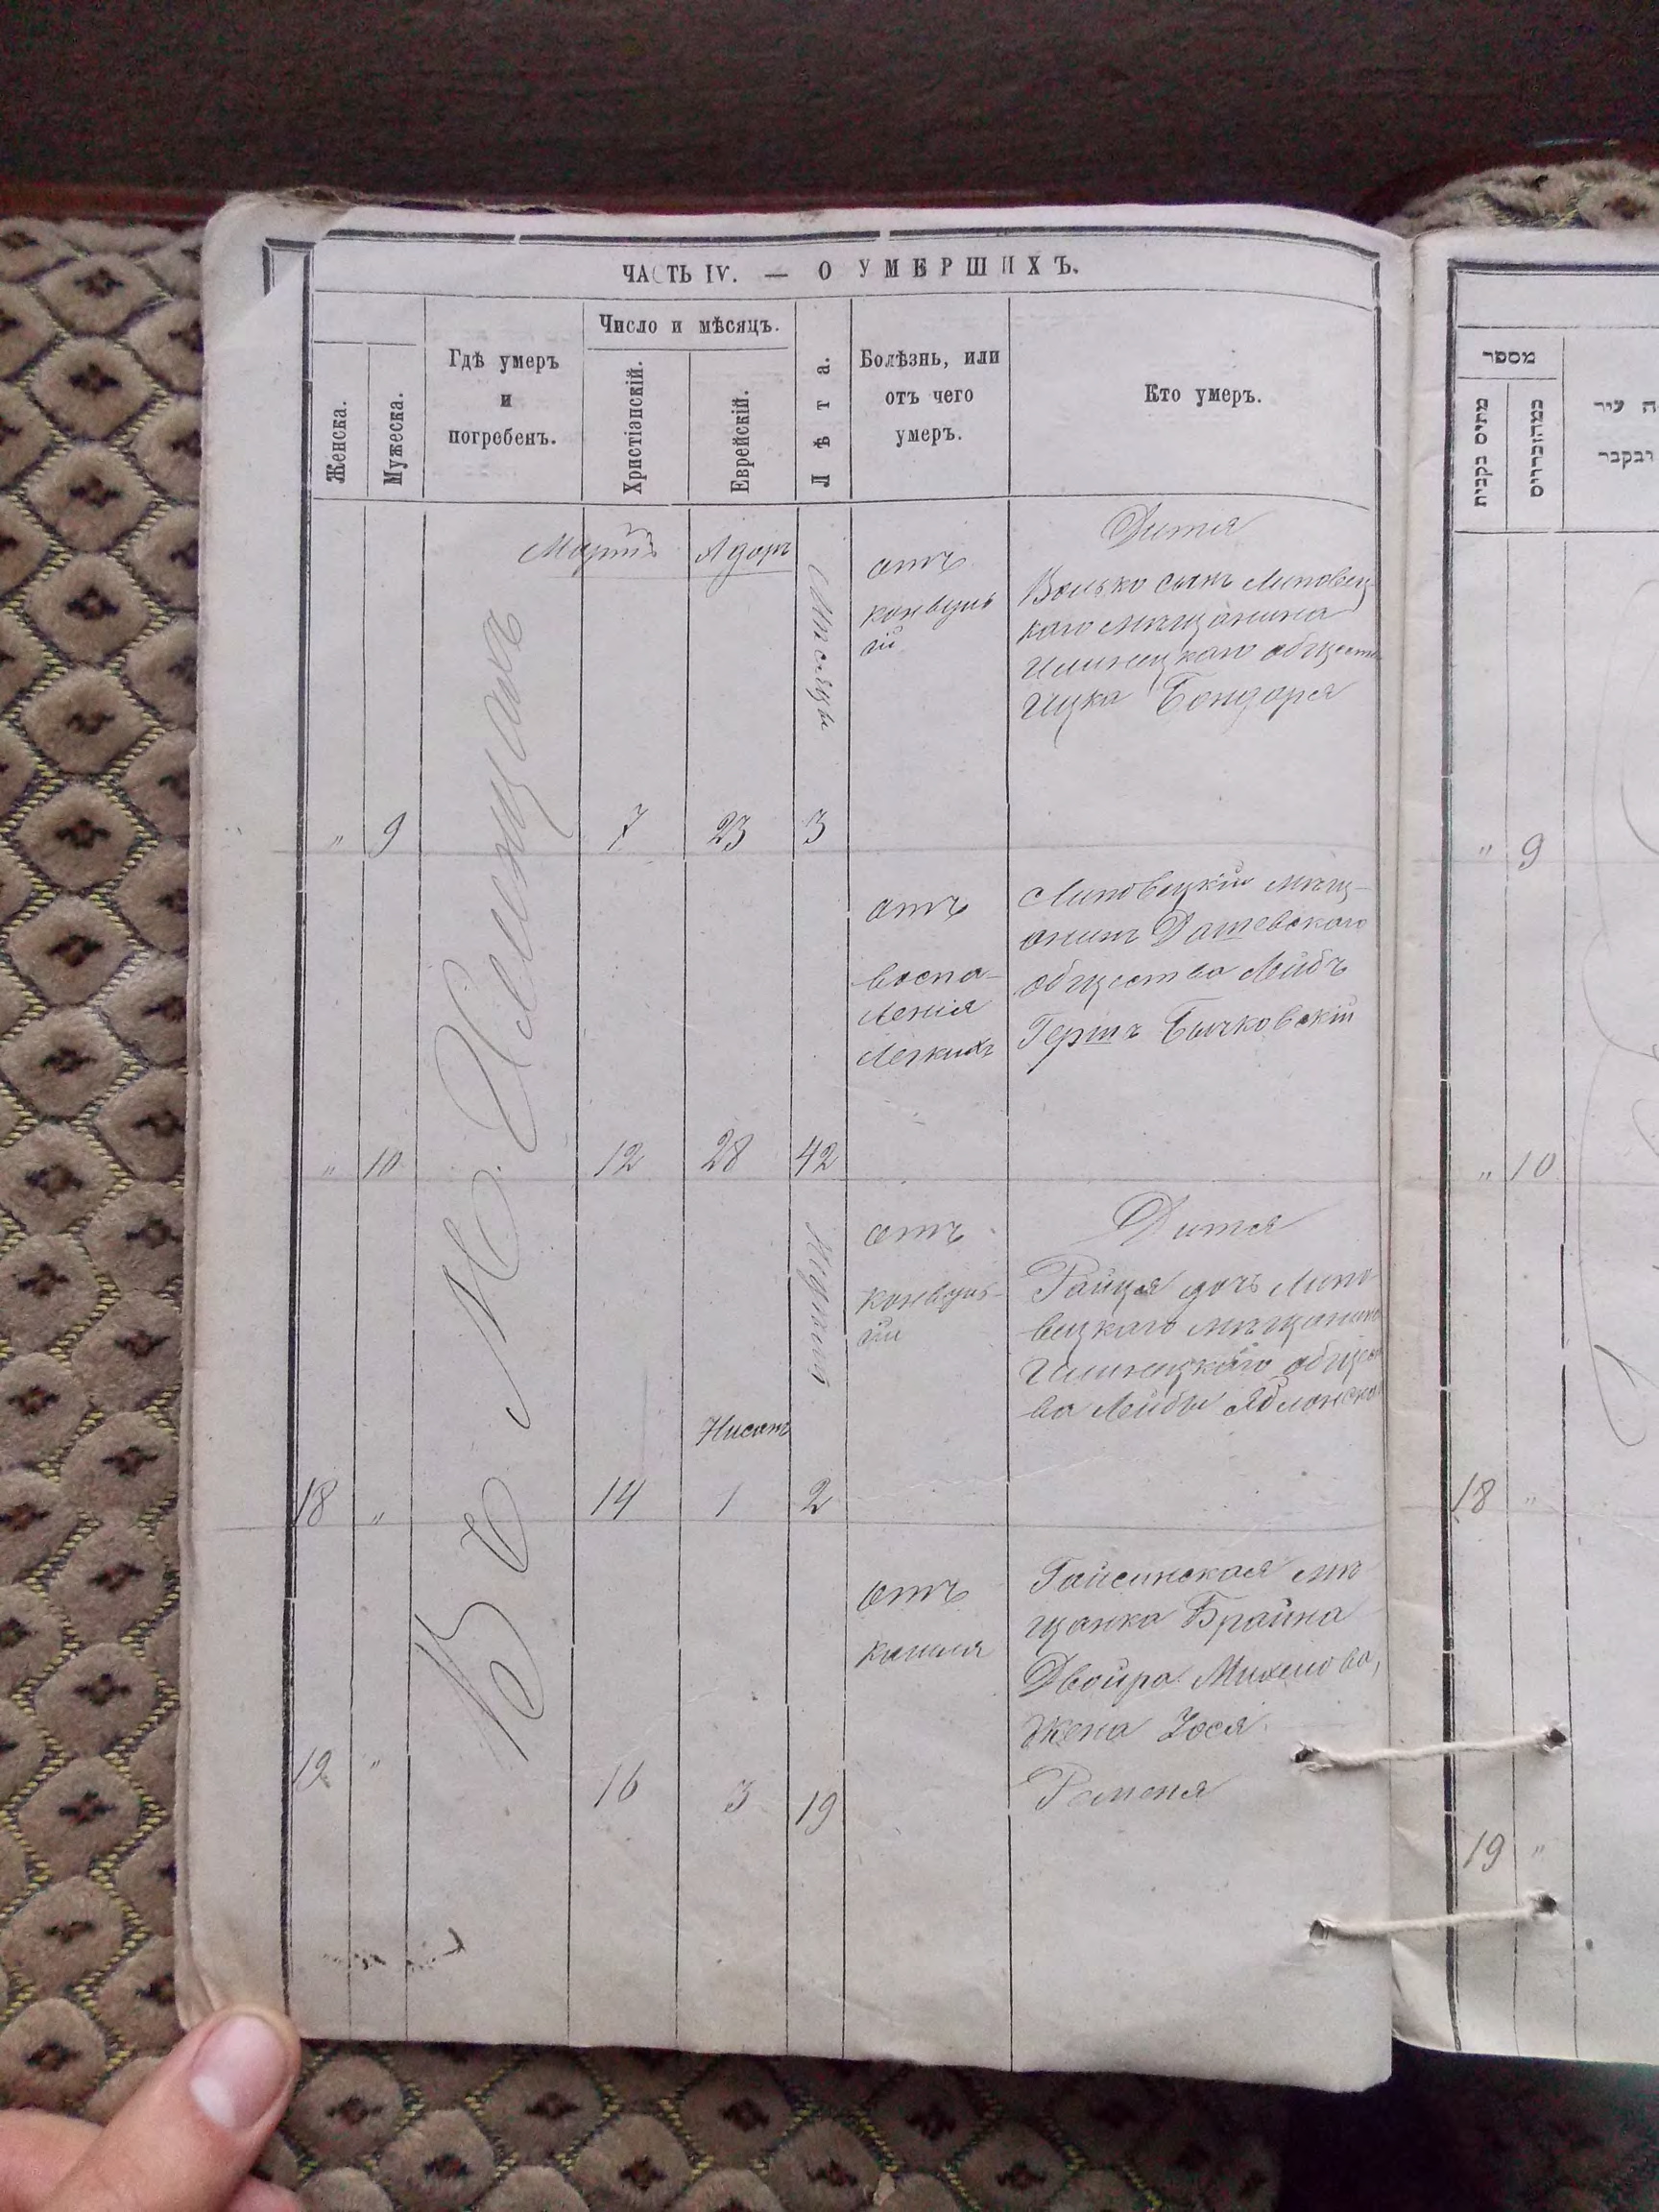 ЧАСТЬ IV. — О УМЕРШИХЪ.
Женска.
Мужеска.
Гдѣ умеръ
и
погребенъ.
Число и мѣсяцъ.
Христіанскій.
Еврейскій.
Лѣта.
Болѣзнь, или
отъ чего
умеръ.
Кто умеръ.
Въ М. Илинцахъ
Мартъ
Адоръ
Мѣсяцы
отъ
конвуль
сій
Дитя
Волько сынъ Липовец
каго мѣщанина
Илинецкаго обществ
Ицка Бондаря
" 9 7 23 3
отъ
воспа-
ленія
легкихъ
Липовецкій мѣщ-
анинъ Дашевскаго
общества Лейбъ
Гершъ Бычковскій
" 10 12 28 42
Недѣли
отъ
конвуль-
сіи
Дитя
Райця дочь Липо
вецкаго мѣщанина
Илинецкаго общест
ва Лейбы Яблонска
Нисанъ
18 " 14 1 2
отъ
кашля
Гайсинская мѣ
щанка Брайна
Двойра Михелова,
жена Іося
19 " 16 3 19
מספר
" 9
" 10
18 "
19 "